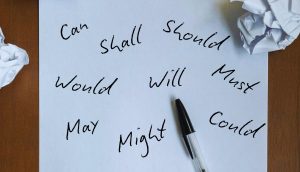 Can Shall Should
Would Will Must
May Might Could